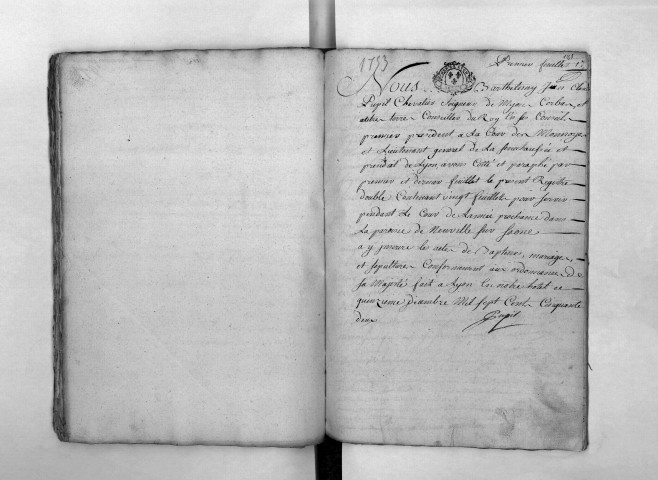 1753
Premier feuillet
Nous Barthelemy Jean Claude
Pupil Chevalier Seigneur de Myon Corbas et
autre terre Conseiller du Roy en ses Conseils
premier président a La Cour des Monnoyes
et Lieutenant general de La Senechaussée et
presidial de Lyon, avons Cotté et paraphé par
premier et dernier feuillet le present Registre
double Contenant vingt feuillets pour servir
pendant Le Cour de L'année prochaine dans
La paroisse de Neuville sur Saone
a y inscrire les actes de Baptemes, mariages,
et sepultures Conformement aux ordonnances de
sa Majesté fait a Lyon en notre hotel ce
quinzieme Décembre Mil sept Cent Cinquante
deux
Pupil